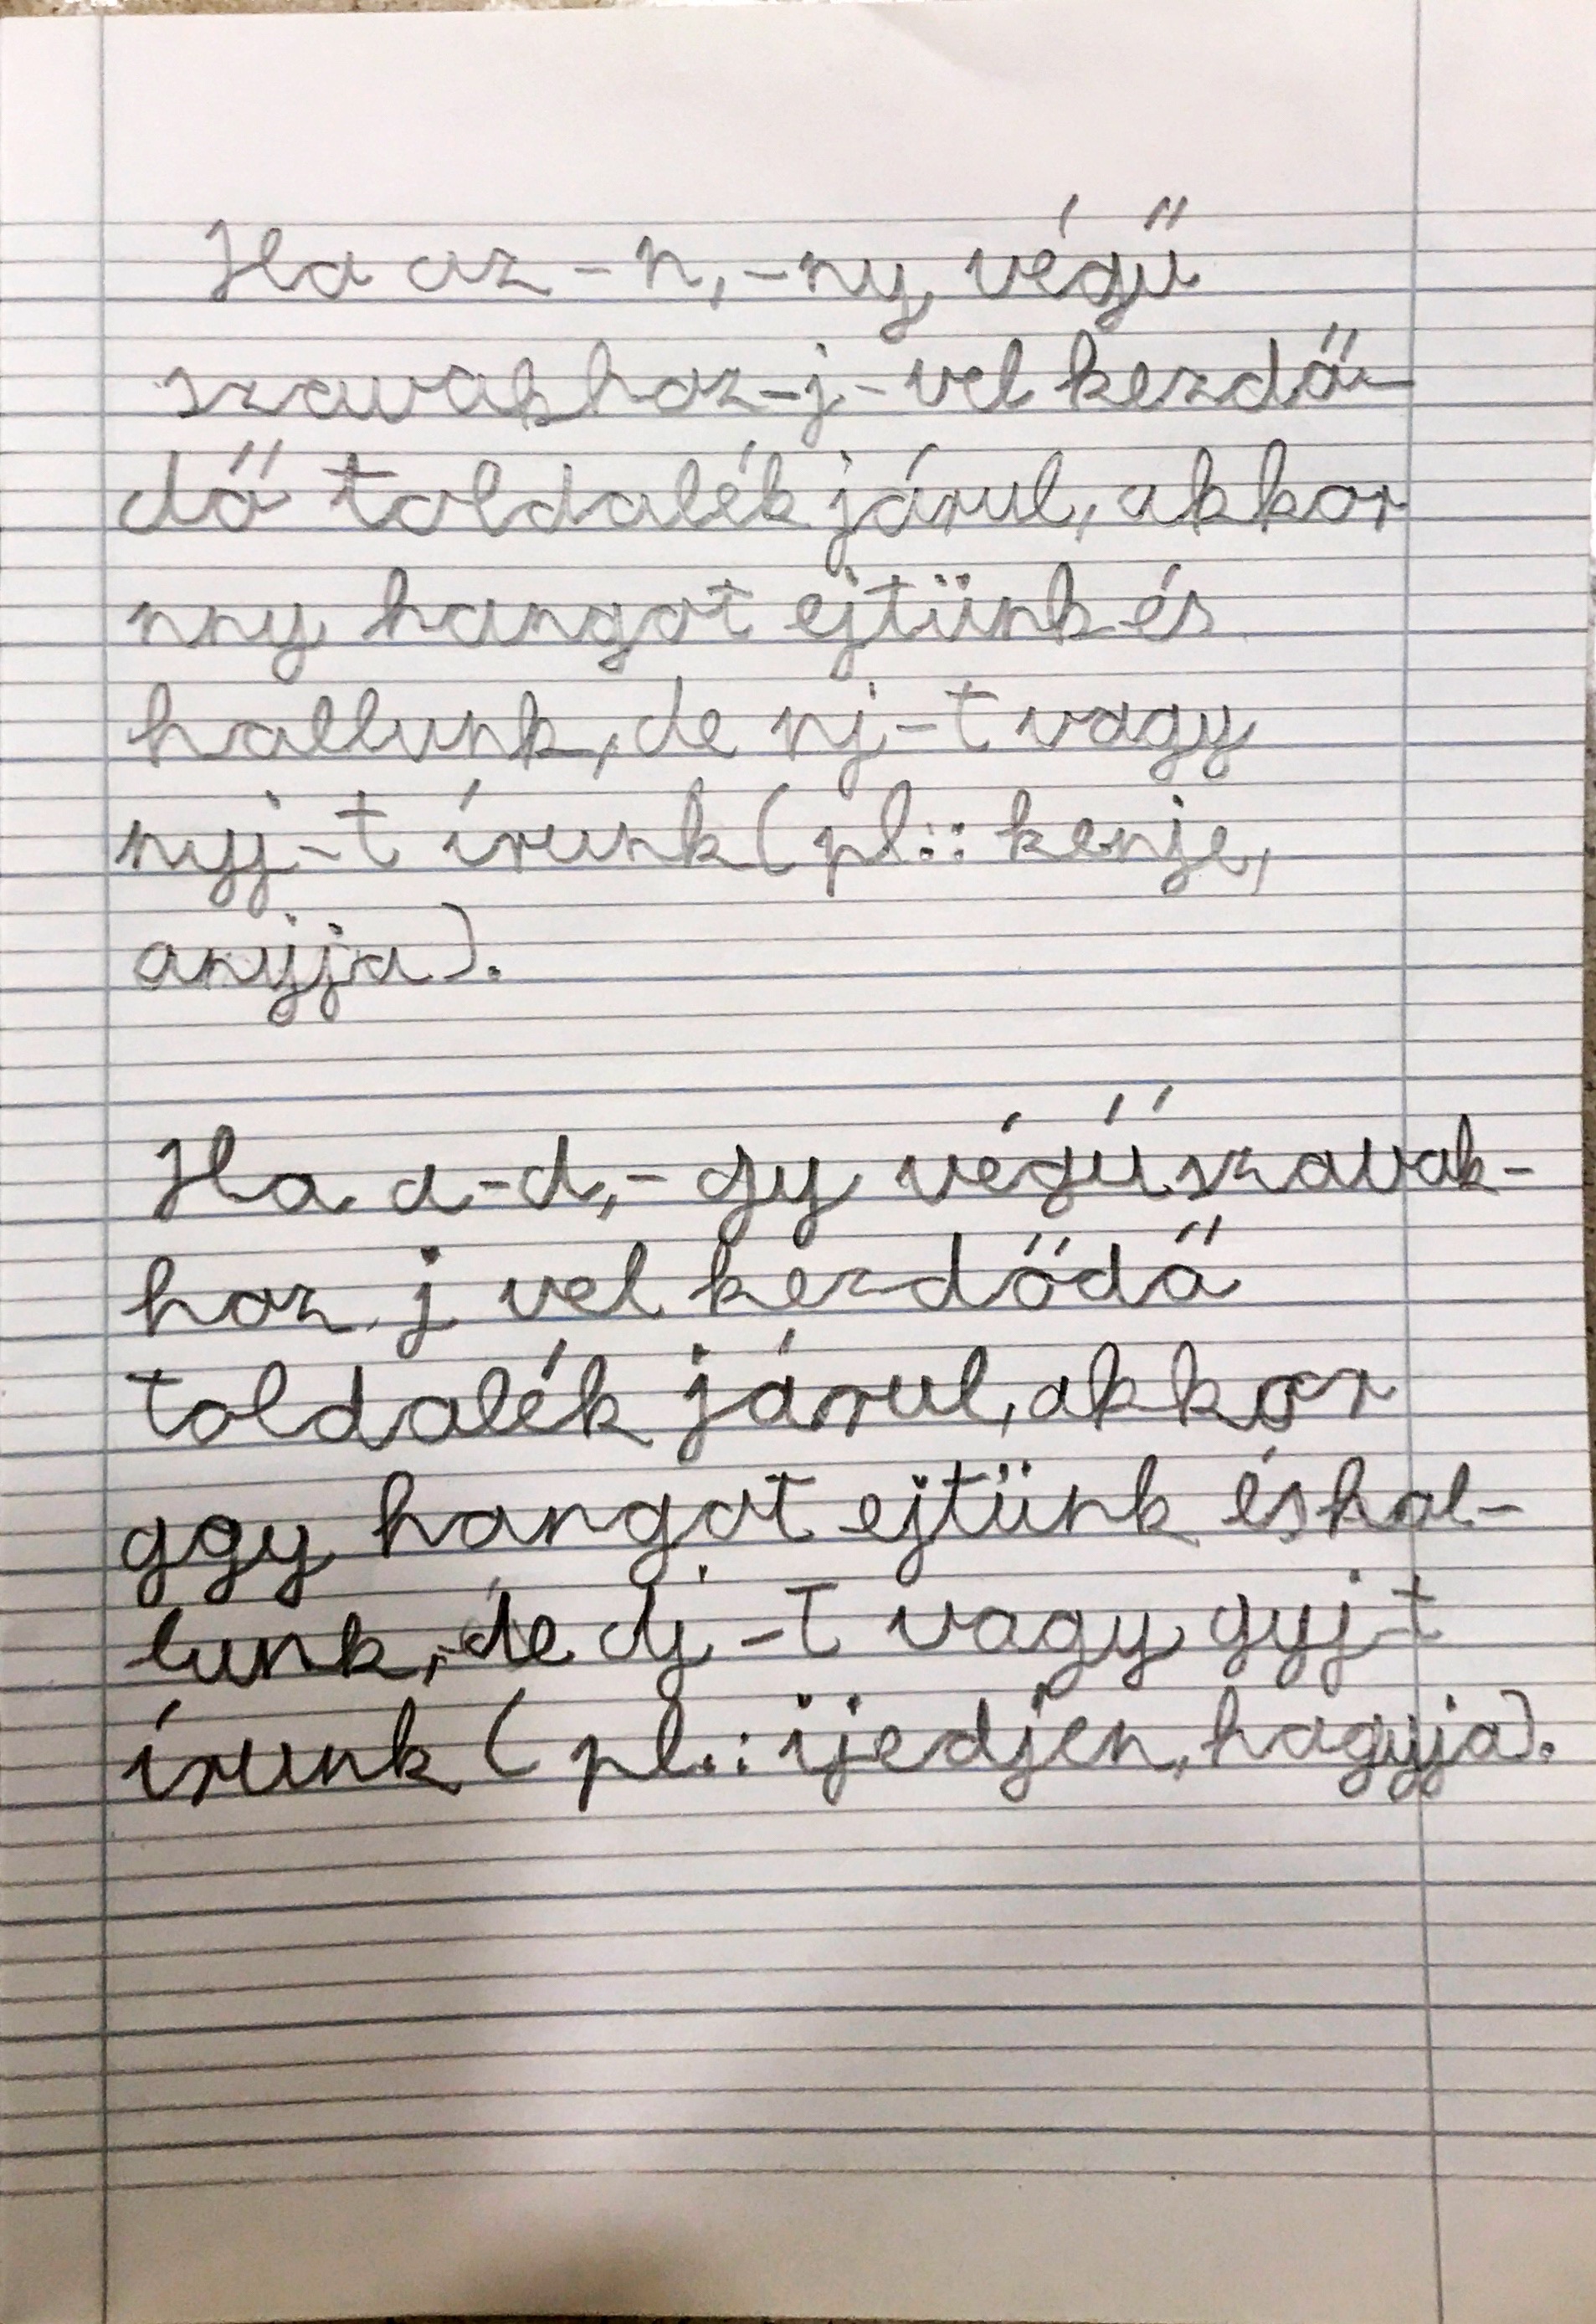 Ha az -n, -ny végű
szavakhoz -j- vel kezdő-
dő toldalék járul, akkor
nny hangot ejtünk és
hallunk, de nj-t vagy
nyj-t írunk (pl.: kenje,
anyja).
Ha a -d, -gy végű szavak-
hoz j vel kezdődő
toldalék járul, akkor
ggy hangot ejtünk és hal-
lunk, de dj -t vagy gyj-t
írunk (pl.: ijedjen, hagyja).